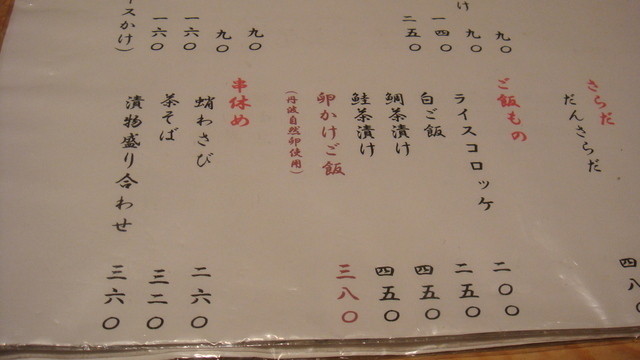 け
九〇
九〇
一四〇
二五〇
九〇
九〇
一六〇
一六〇
イスかけ)
さらだ
だんさらだ 四八
ご飯もの
ライスコロッケ 二〇〇
白ご飯 二五〇
鯛茶漬け 四五〇
鮭茶漬け 四五〇
卵かけご飯 三八〇
(丹波自然卵使用)
串休め
蛸わさび 二六〇
茶そば 三二〇
漬物盛り合わせ 三六〇